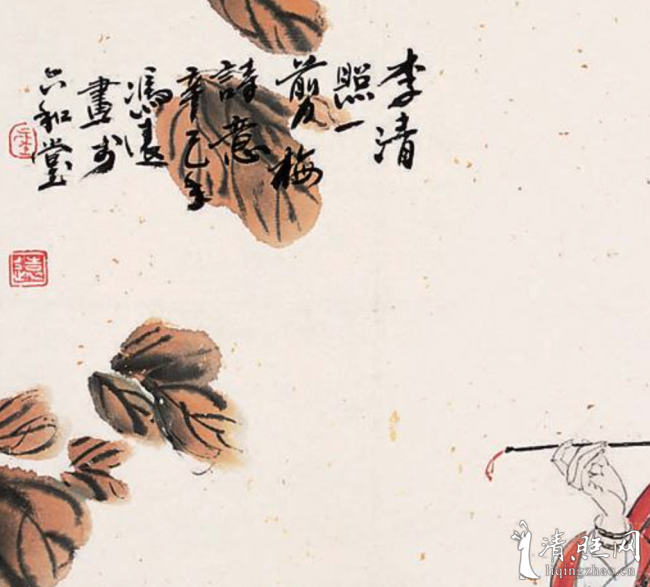 李清
照一
剪梅
詩意
辛巳年
馮遠
畫於
六和堂
liqingzhao.cn